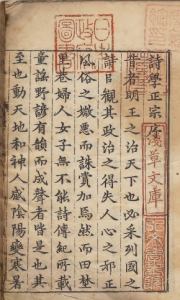 詩學正宗序
昔者明王之治天下也必采列國之
詩官觀其政治之得失人心之邪正
風俗之媺惡而誅賞加焉然而田埜
里巷婦人女子無不能詩傳紀所載
童謡野諺有韻而成聲者皆是也其
至也動天地和神人感陰陽變寒暑
淺草文庫